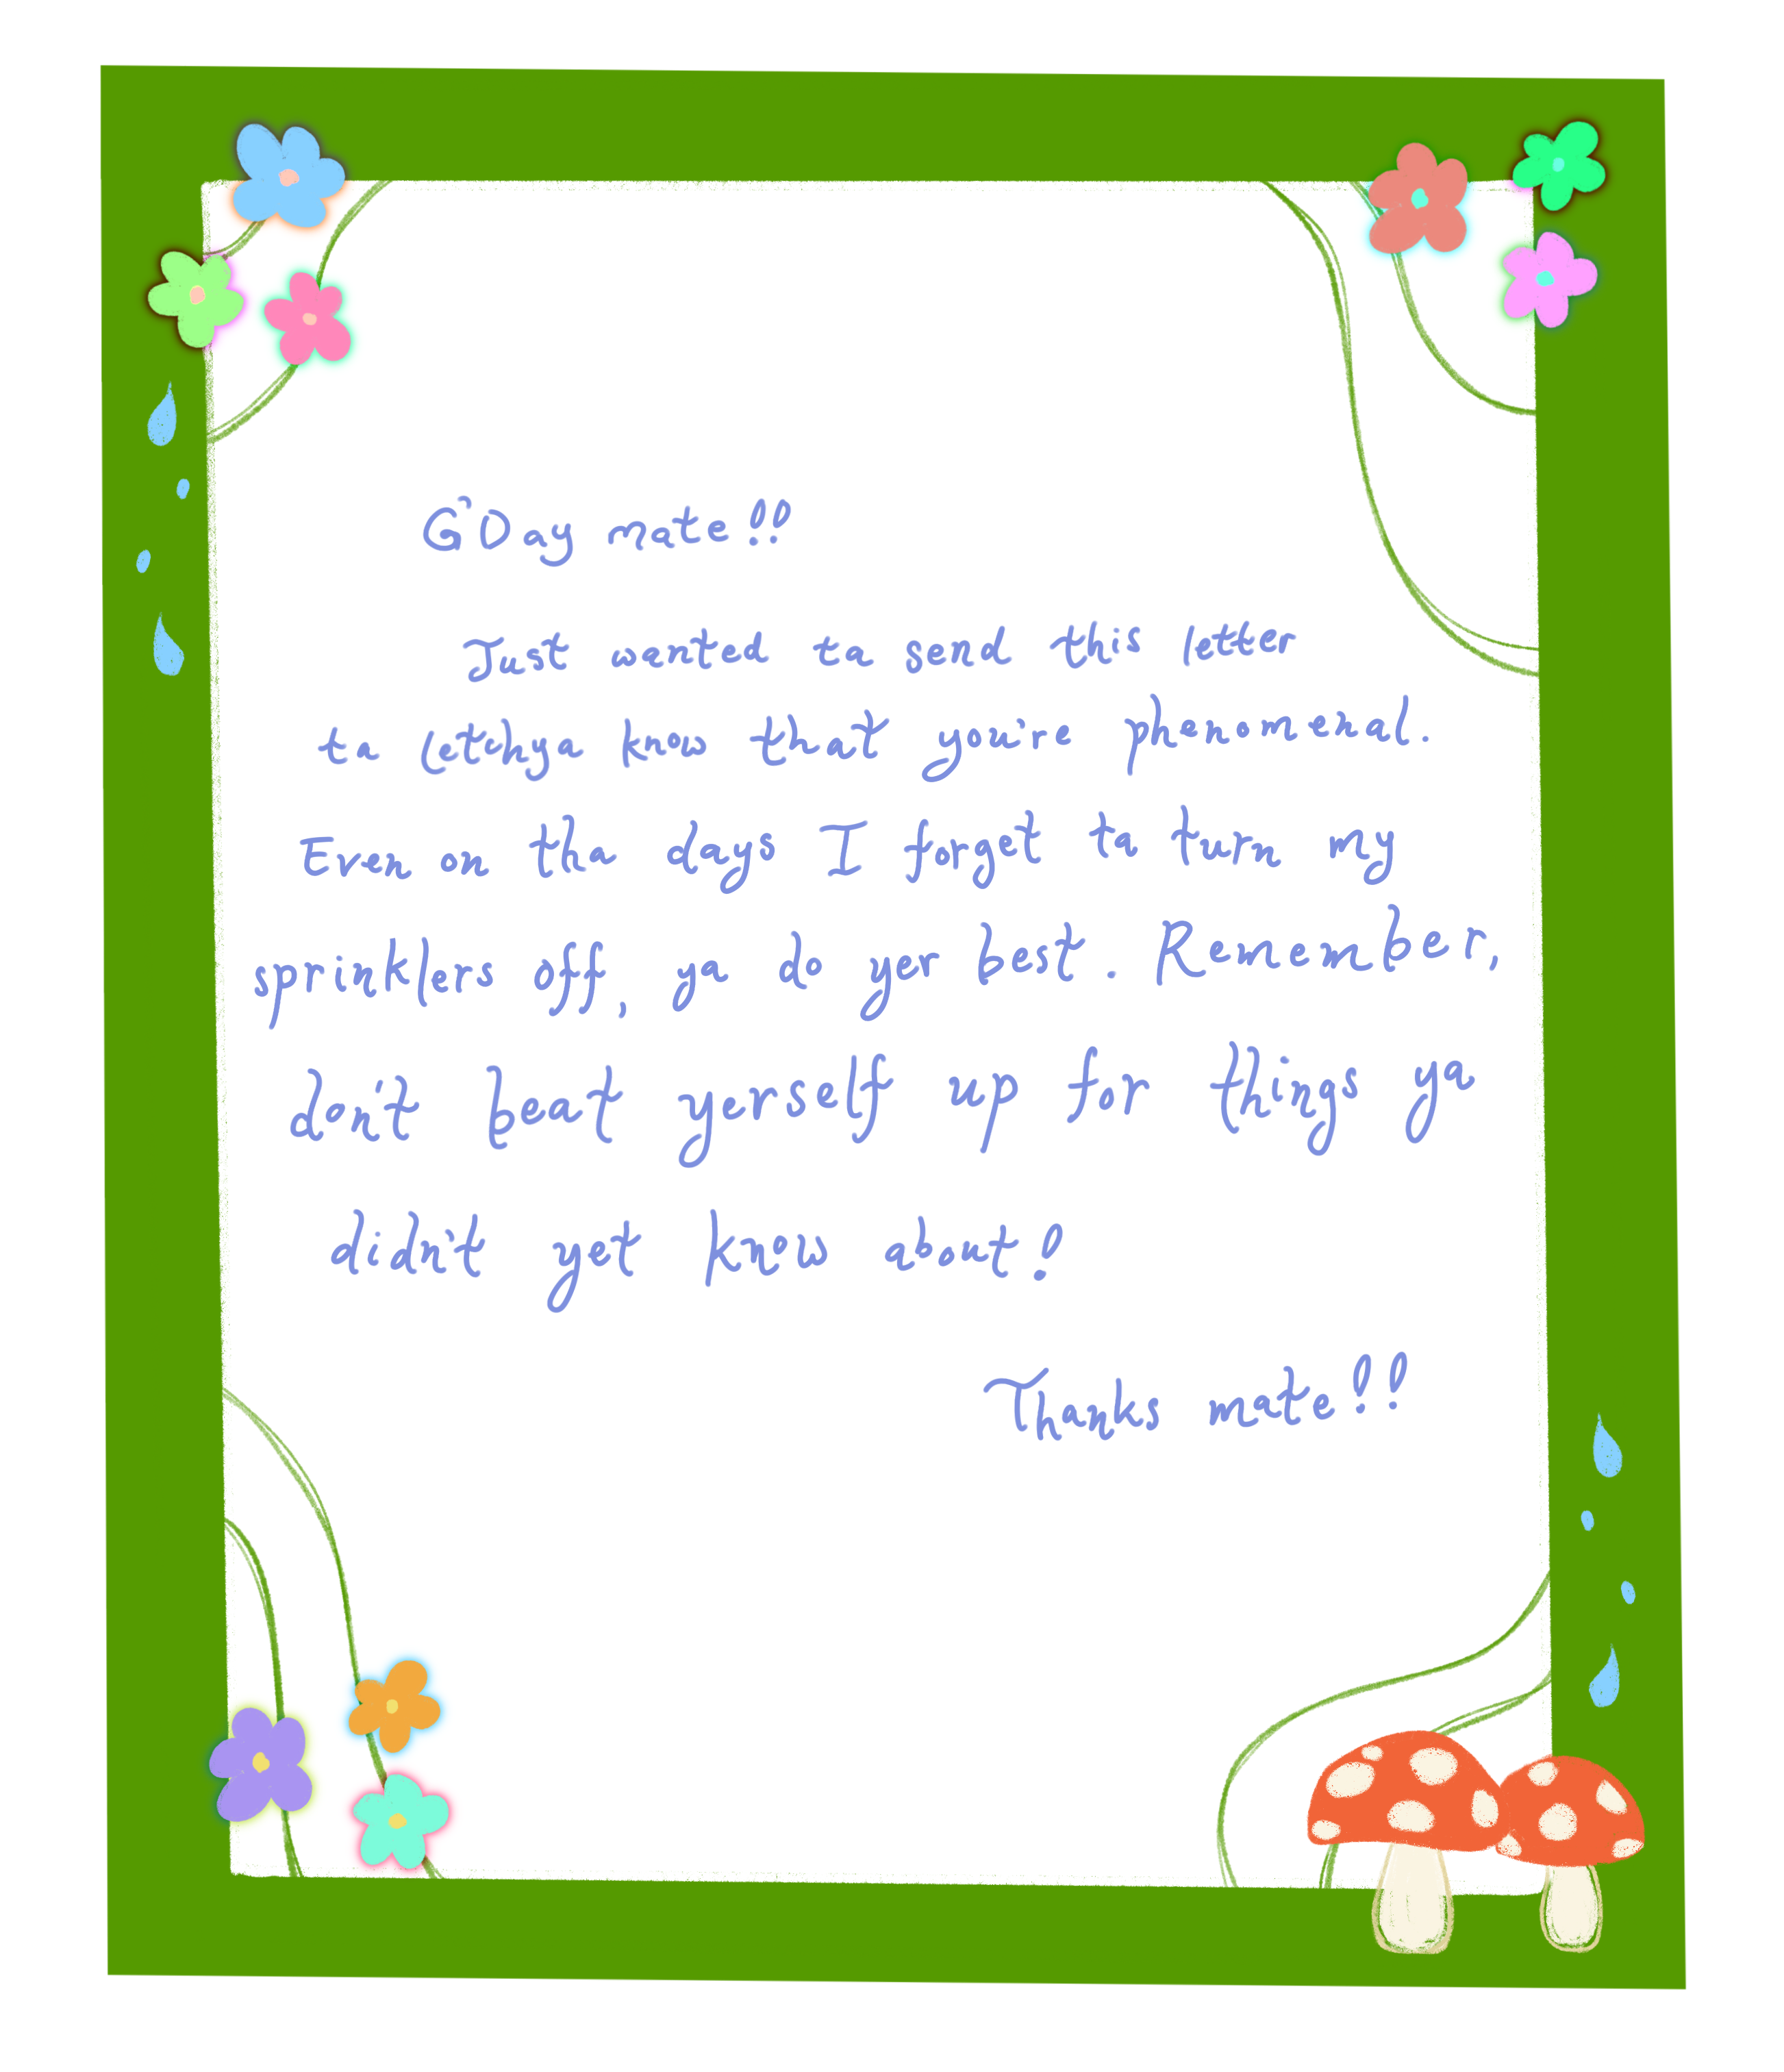 G'Day mate!!
Just wanted ta send this letter
ta letchya know that you're phenomenal.
Even on tha days I forget ta turn my
sprinklers off, ya do yer best. Remember,
don't beat yerself up for things ya
didn't yet know about!
Thanks mate!!